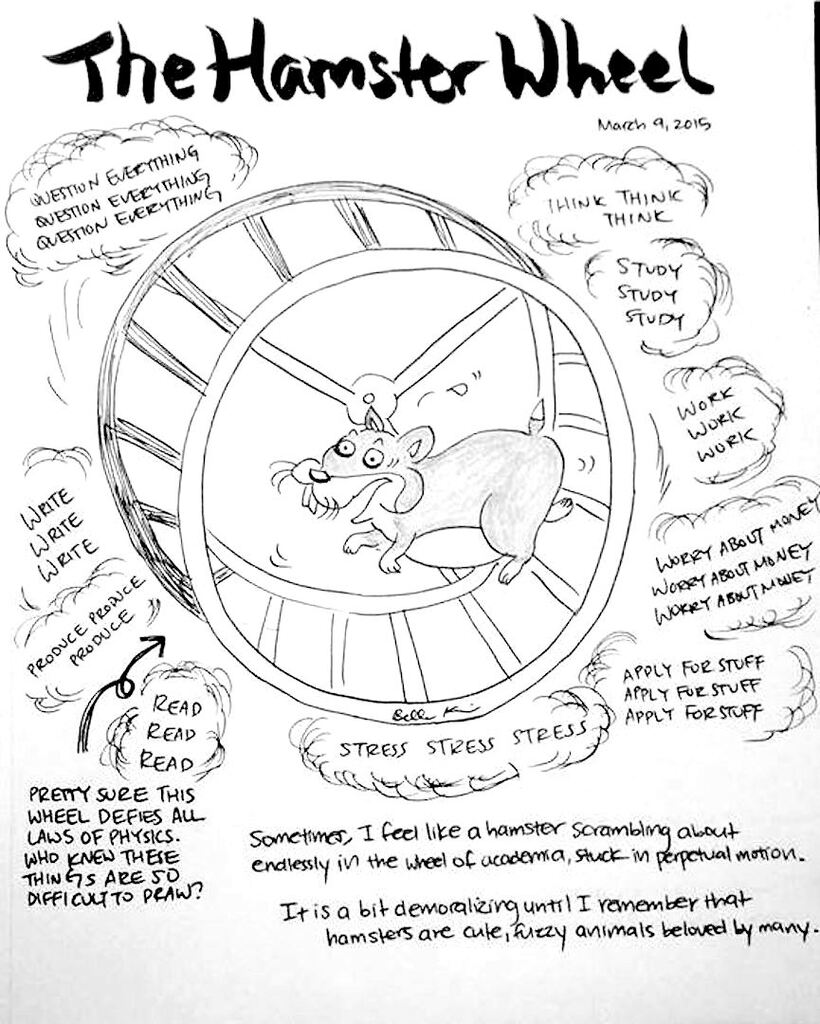 The Hamster Wheel
March 9, 2015
QUESTION EVERYTHING
QUESTION EVERYTHING
QUESTION EVERYTHING
THINK THINK
THINK
STUDY
STUDY
STUDY
WORK
WORK
WORK
WRITE
WRITE
WRITE
WORRY ABOUT MONEY
WORRY ABOUT MONEY
WORRY ABOUT MONEY
PRODUCE PRODUCE
PRODUCE
APPLY FOR STUFF
APPLY FOR STUFF
APPLY FOR STUFF
READ
READ
READ
STRESS STRESS STRESS
PRETTY SURE THIS
WHEEL DEFIES ALL
LAWS OF PHYSICS.
WHO KNEW THESE
THINGS ARE SO
DIFFICULT TO DRAW?
Sometimes, I feel like a hamster scrambling about
endlessly in the wheel of academia, stuck in perpetual motion.
It is a bit demoralizing until I remember that
hamsters are cute, fuzzy animals beloved by many.